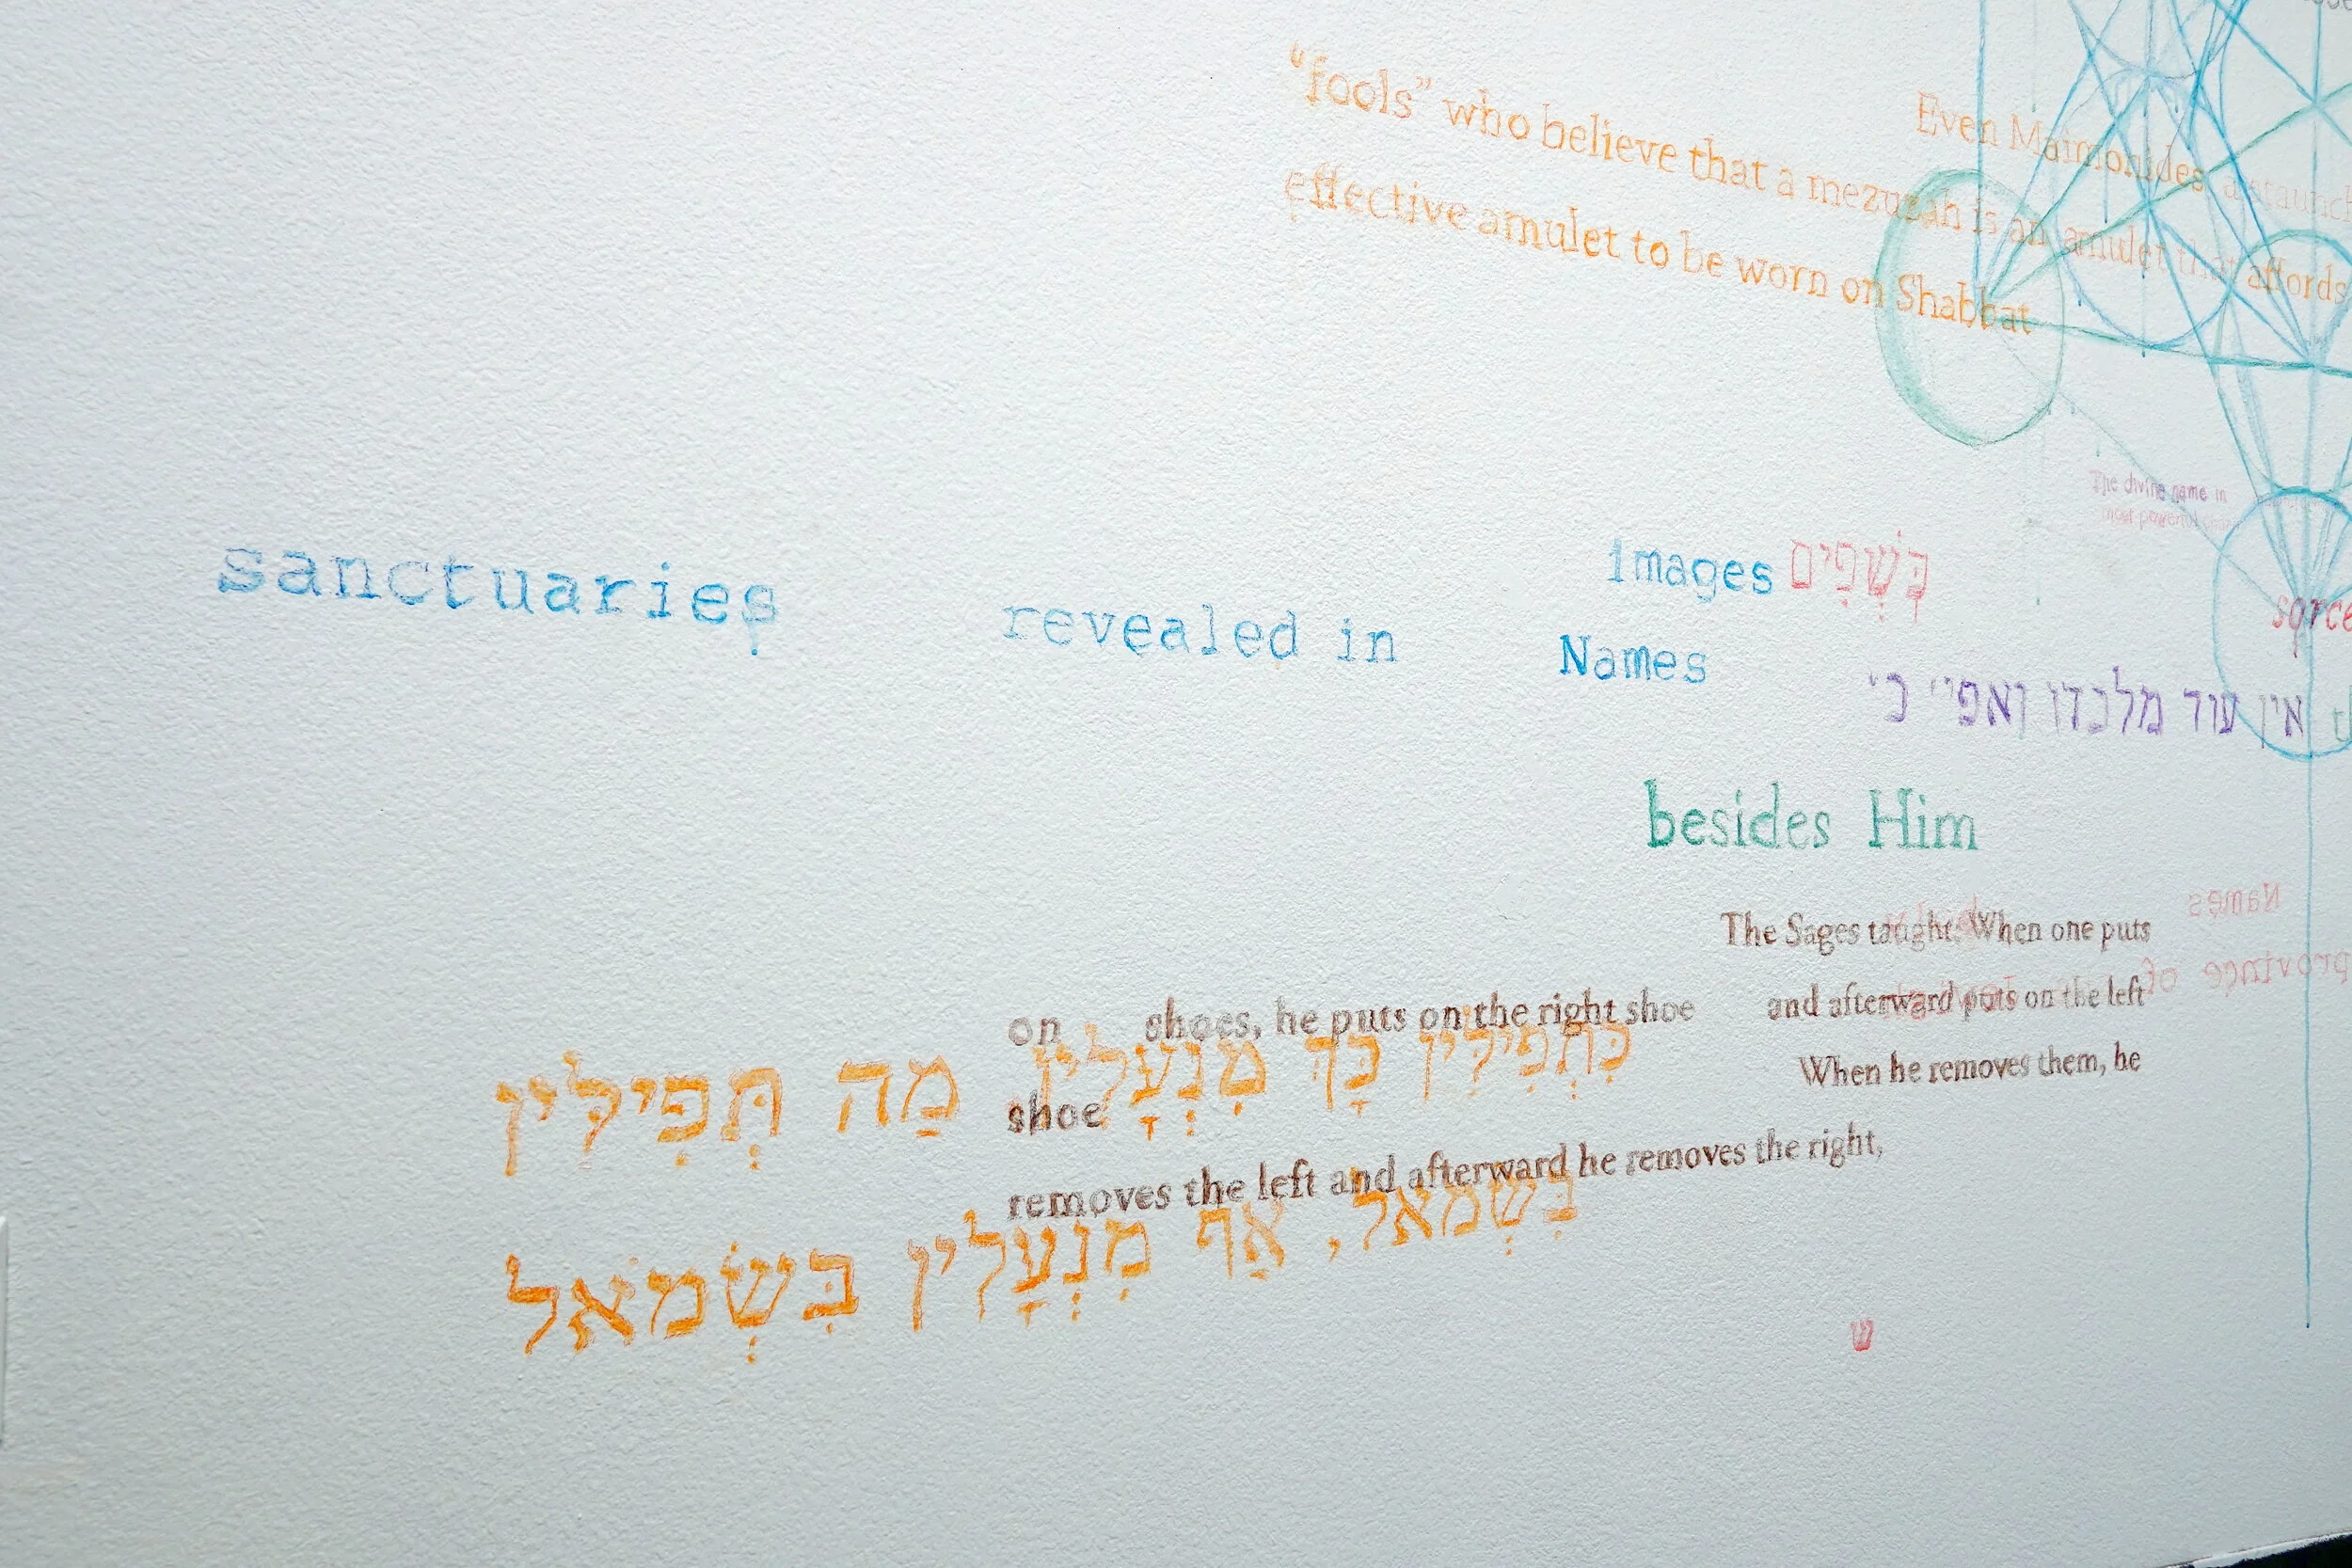 Even Maimonides, a staunch
“fools” who believe that a mezuzah is an amulet that affords
effective amulet to be worn on Shabbat
The divine name in
most powerful
images כְּשָׁפִים
sanctuaries revealed in
Names
אין עוד מלבדו ואפי׳ כ׳
besides Him
Names
The Sages taught: When one puts
province of
on shoes, he puts on the right shoe and afterward puts on the left
מַה תְּפִילִּין
כִּתְפִילִּין כָּךְ מִנְעָלִין
shoe When he removes them, he
removes the left and afterward he removes the right,
בִּשְׂמֹאל, אַף מִנְעָלִין בִּשְׂמֹאל
ש